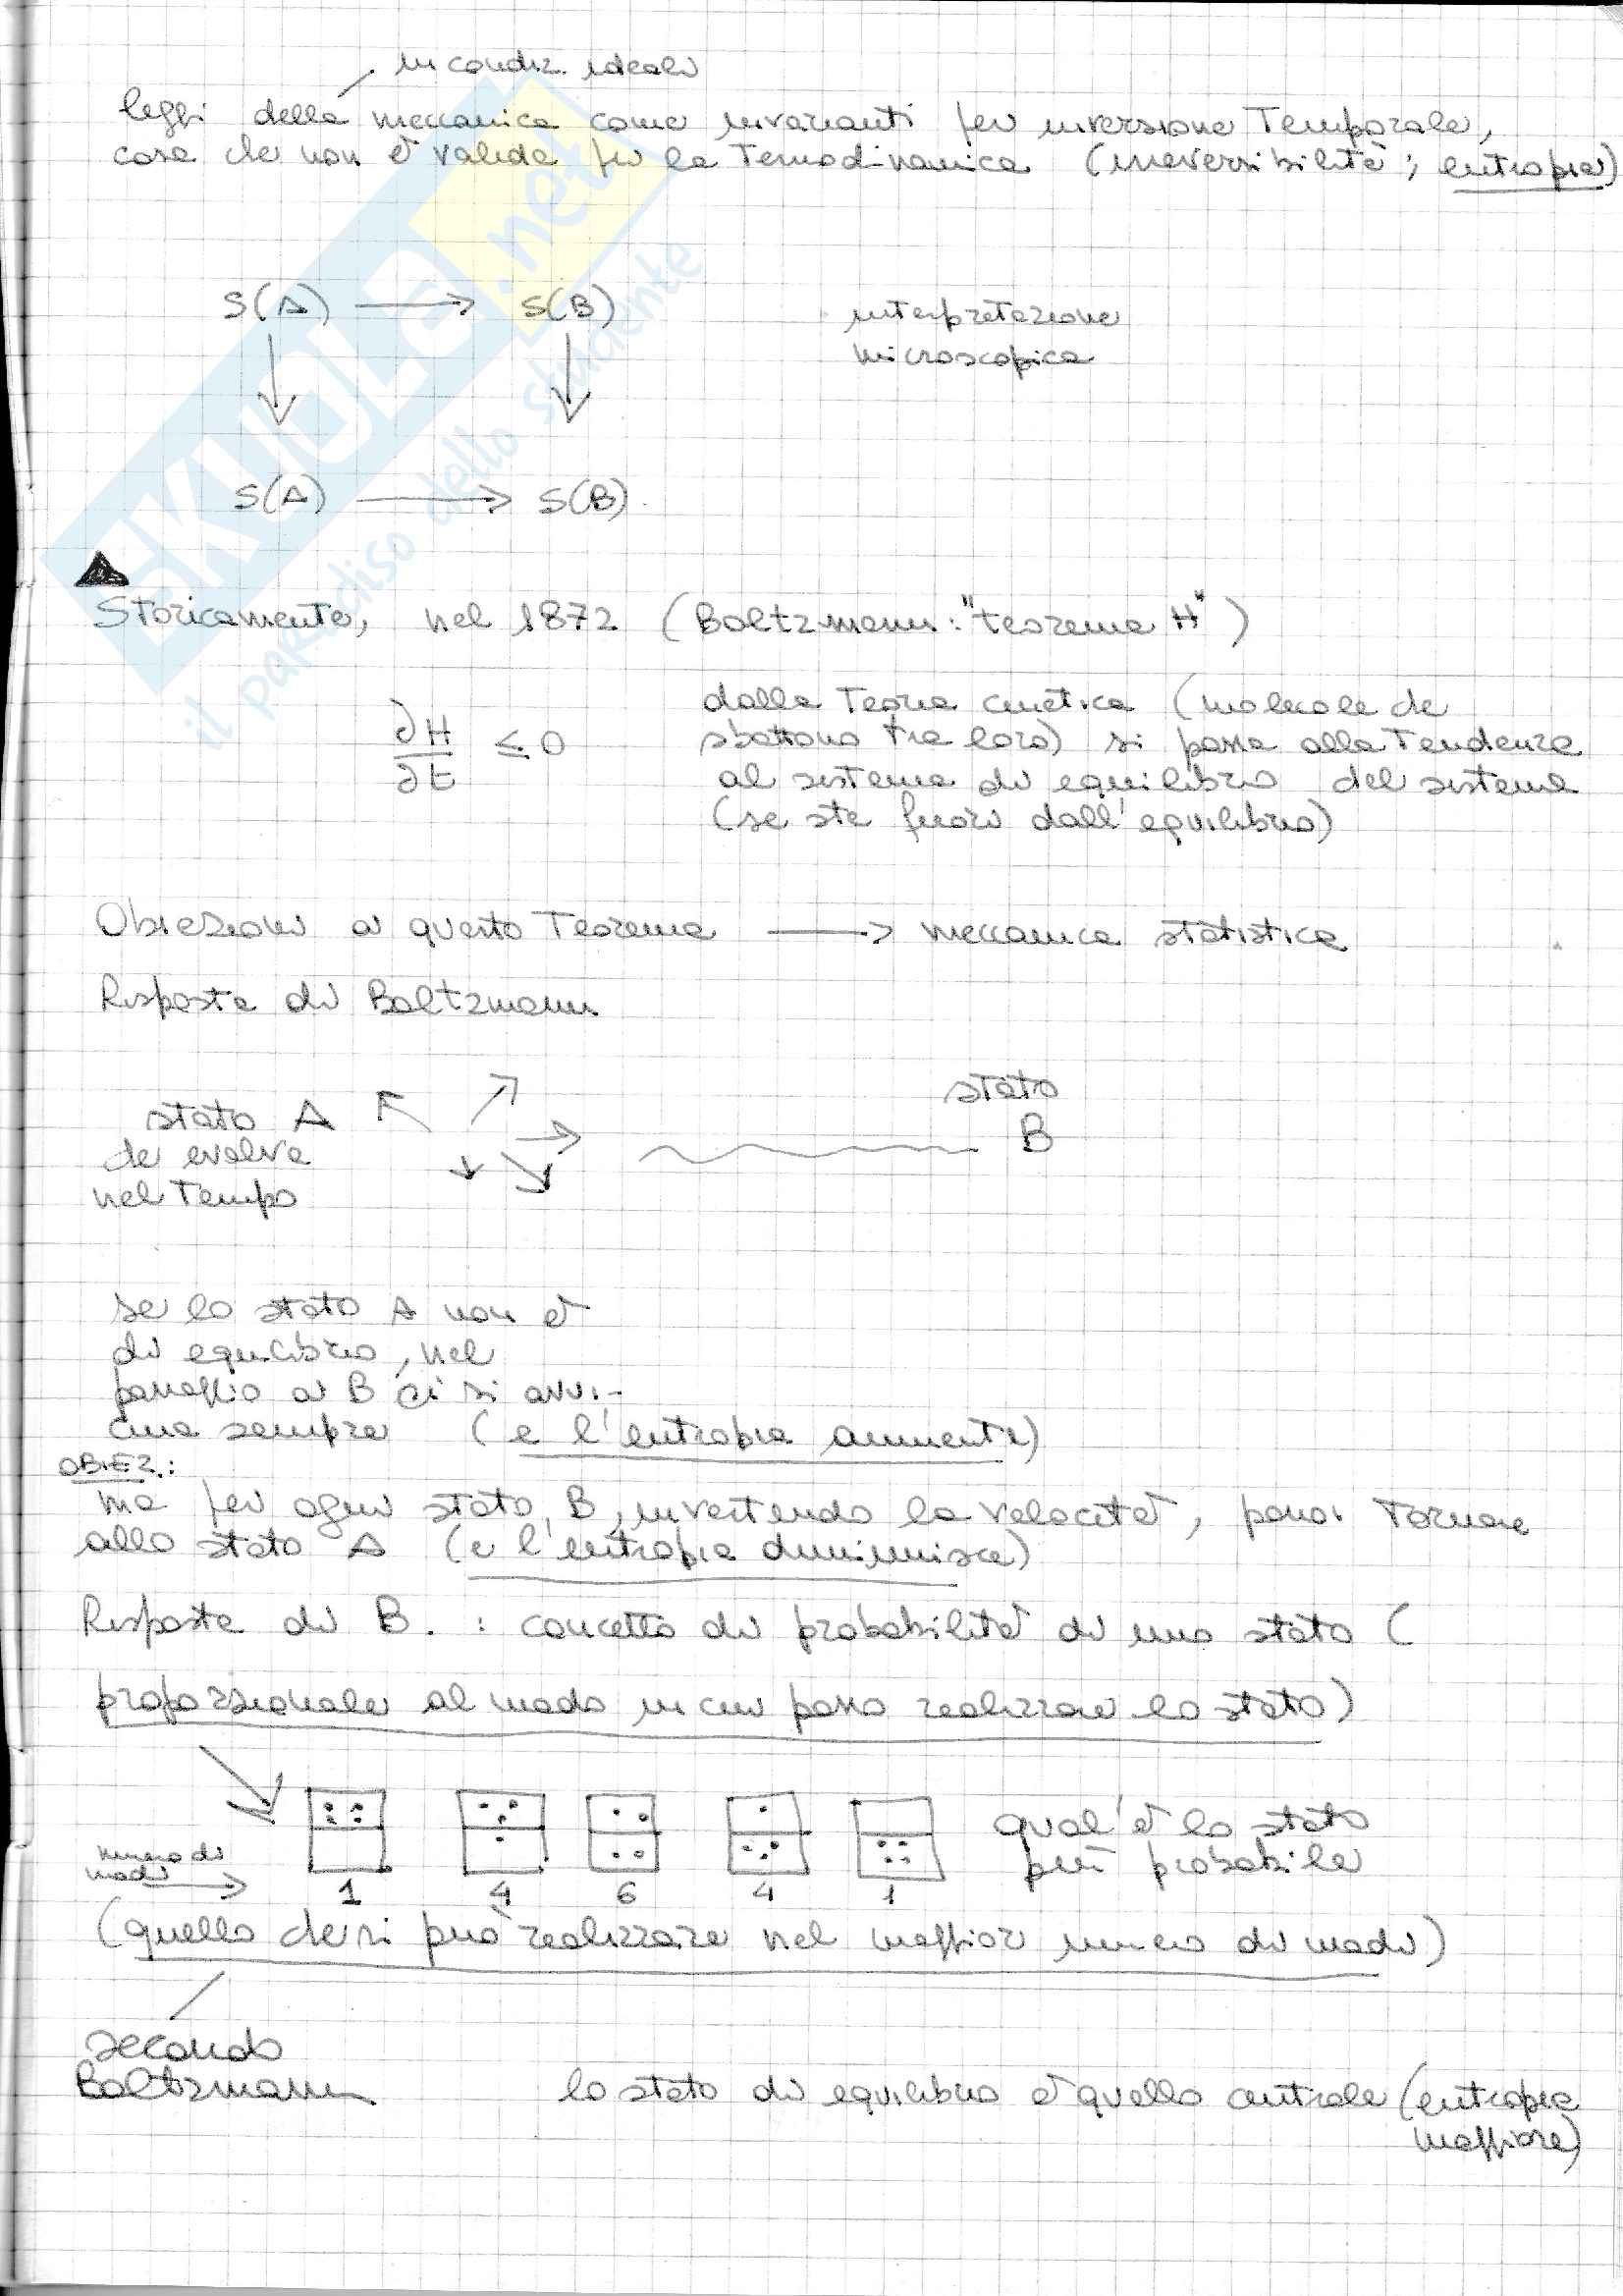 in condiz. ideali
leggi della meccanica come invarianti per inversione Temporale,
cosa che non è valida per la Termodinamica (irreversibilità; entropia)
S(A) → S(B)
interpretazione
microscopica
S(A) → S(B)
SKUOLA.net
il paradiso dello studente
Storicamente, nel 1872 (Boltzmann: "teorema H")
∂H/∂t ≤ 0
dalla Teoria cinetica (molecole che
sbattono tra loro) si passa alla Tendenza
al sistema di equilibrio del sistema
(se sta fuori dall'equilibrio)
Obiezioni a questo Teorema → meccanica statistica
Risposta di Boltzmann
stato A
che evolve
nel Tempo
stato
B
se lo stato A non è
di equilibrio, nel
passaggio a B ci si avvi-
cina sempre (e l'entropia aumenta)
OBIEZ.:
ma per ogni stato B, invertendo la velocità, posso Tornare
allo stato A (e l'entropia diminuisce)
Risposta di B. : concetto di probabilità di uno stato (
proporzionale al modo in cui posso realizzare lo stato)
numero di
modi →
1 4 6 4 1
qual è lo stato
più probabile
(quello che si può realizzare nel maggior numero di modi)
secondo
Boltzmann
lo stato di equilibrio è quello centrale (entropia
maggiore)